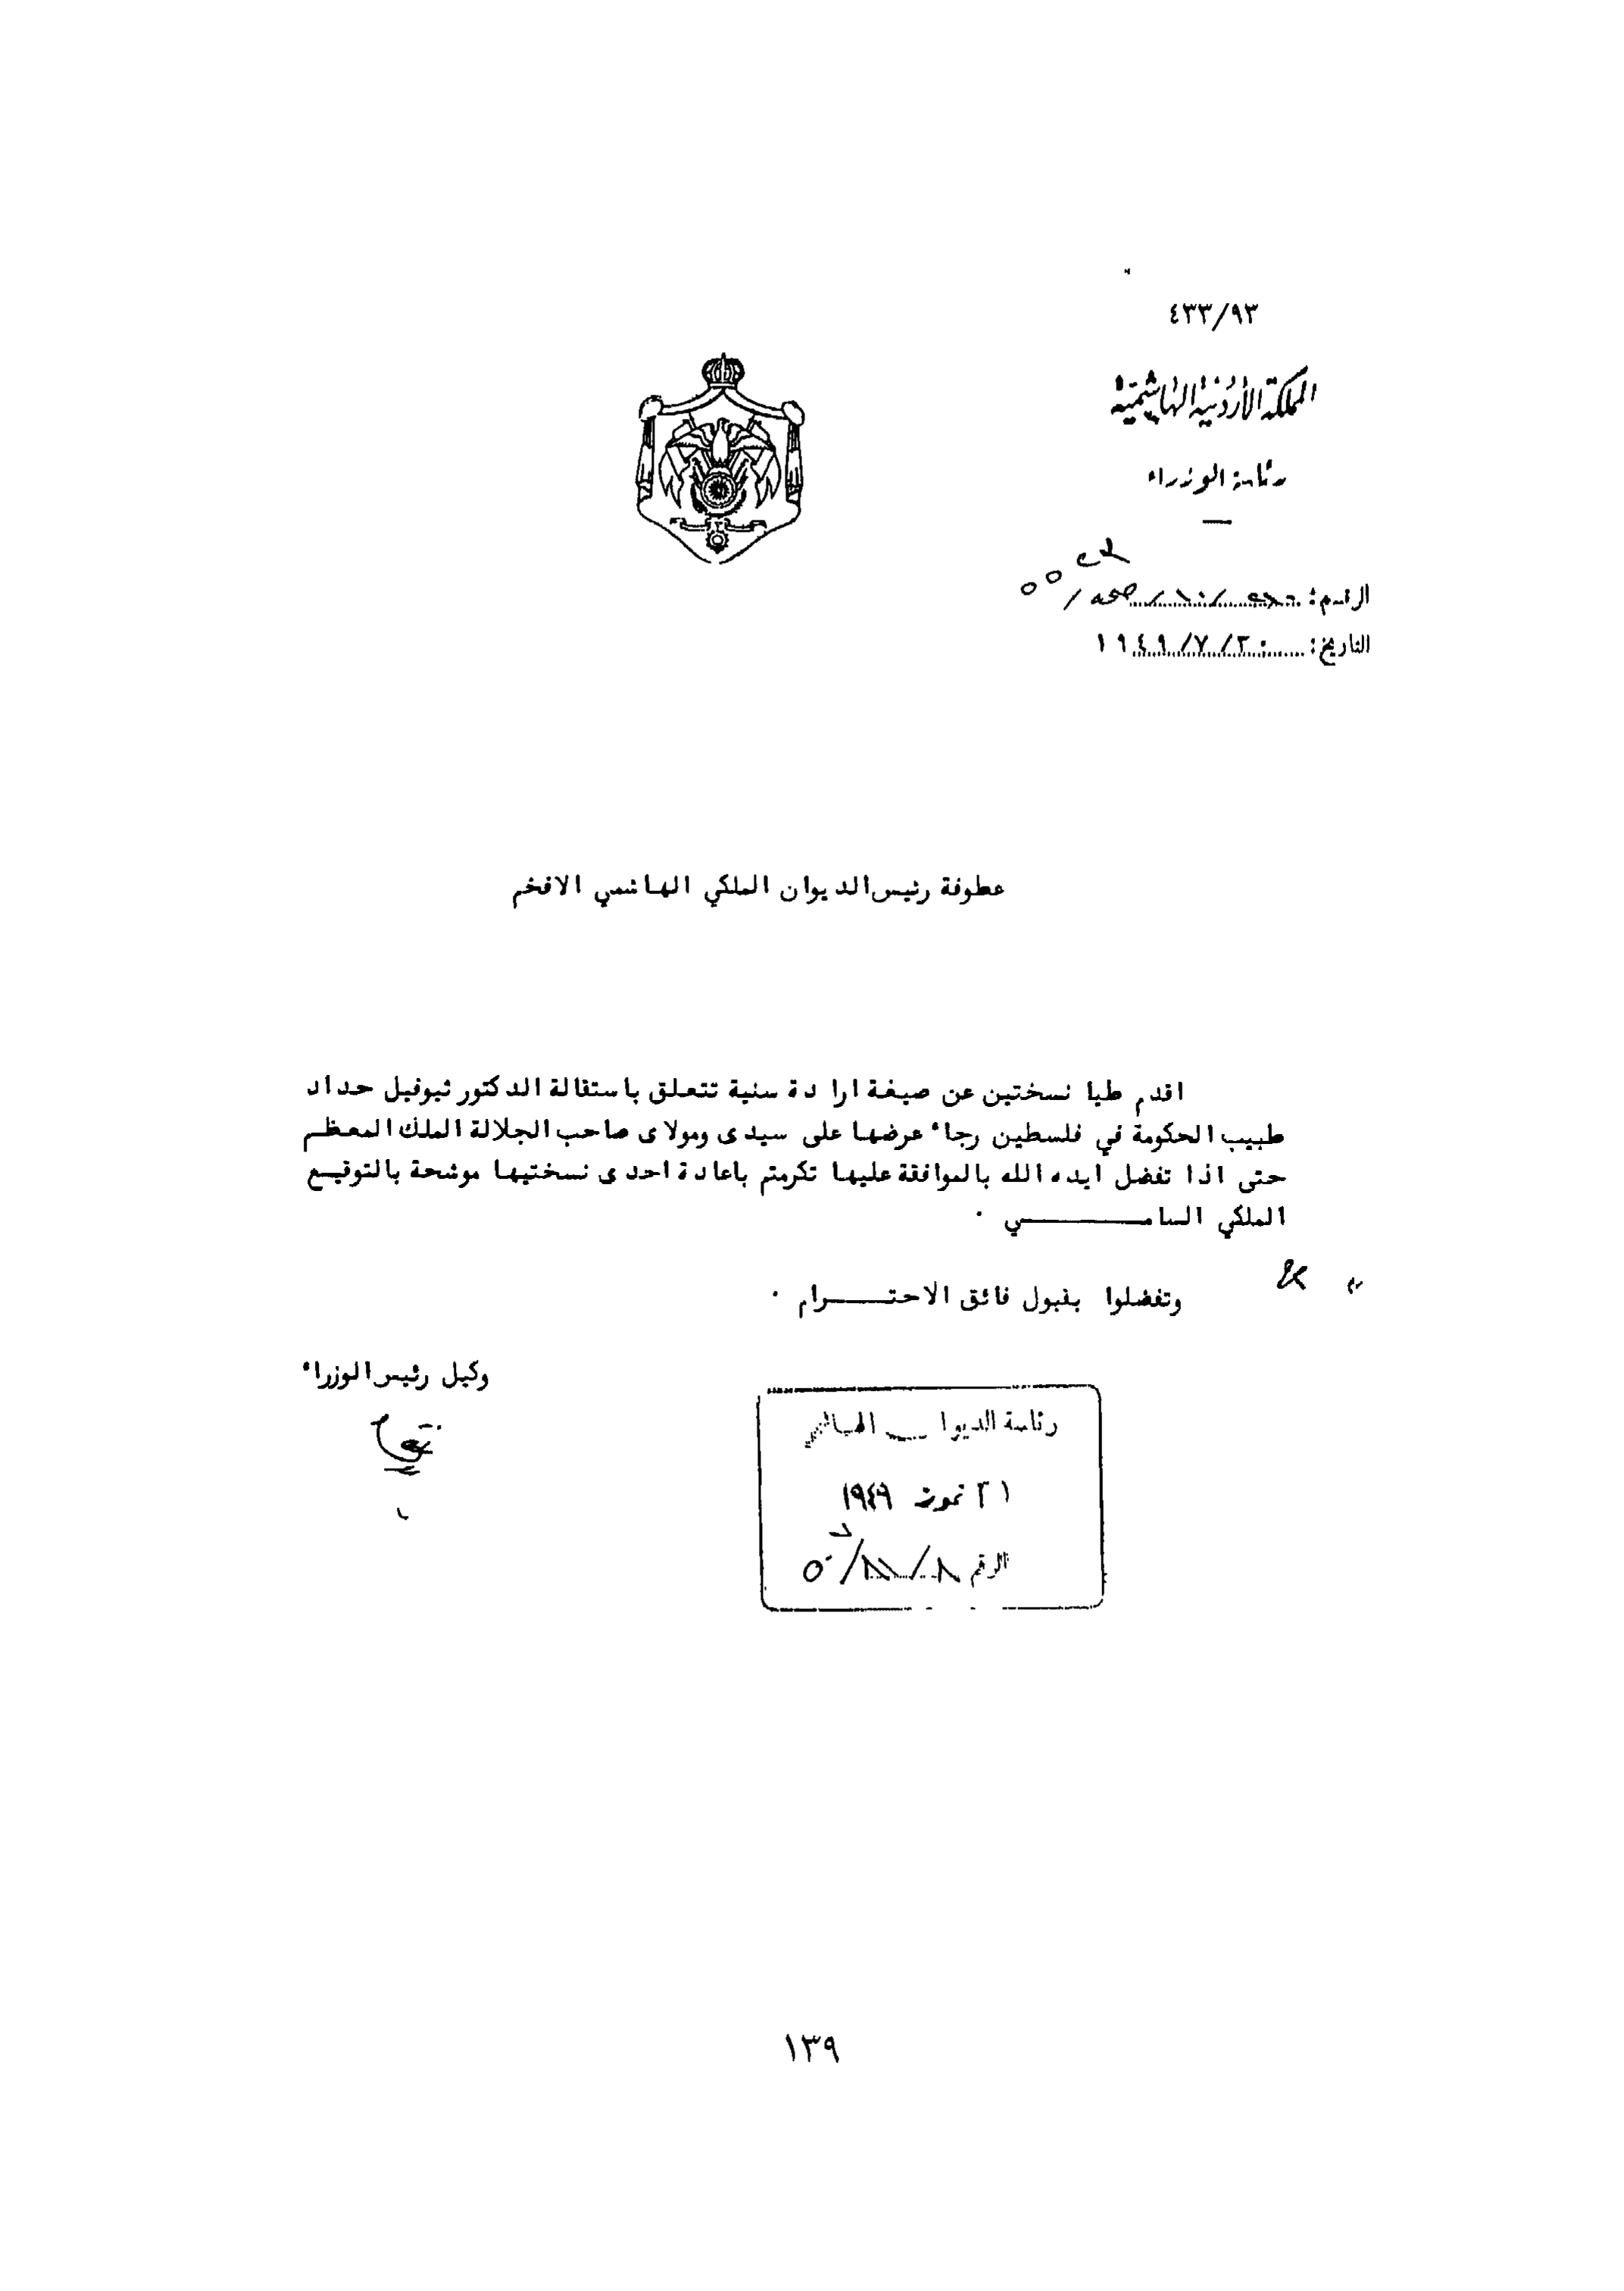 ٤٣٣/٩٣
المملكة الأردنية الهاشمية
رئاسة الوزراء
الرقم:
التاريخ: ٣٠/٧/١٩٤٩
عطوفة رئيس الديوان الملكي الهاشمي الافخم
اقدم طيا نسختين عن صيغة ارادة سنية تتعلق باستقالة الدكتور ثيوفيل حداد
طبيب الحكومة في فلسطين رجاء عرضها على سيدى ومولاى صاحب الجلالة الملك المعظم
حتى اذا تفضل ايده الله بالموافقة عليها تكرمتم باعادة احدى نسختيها موشحة بالتوقيع
الملكي السامي ٠
وتفضلوا بقبول فائق الاحترام ٠
وكيل رئيس الوزراء
رئاسة الديوان الهاشمي
٣١ تموز ١٩٤٩
الرقم
١٣٩